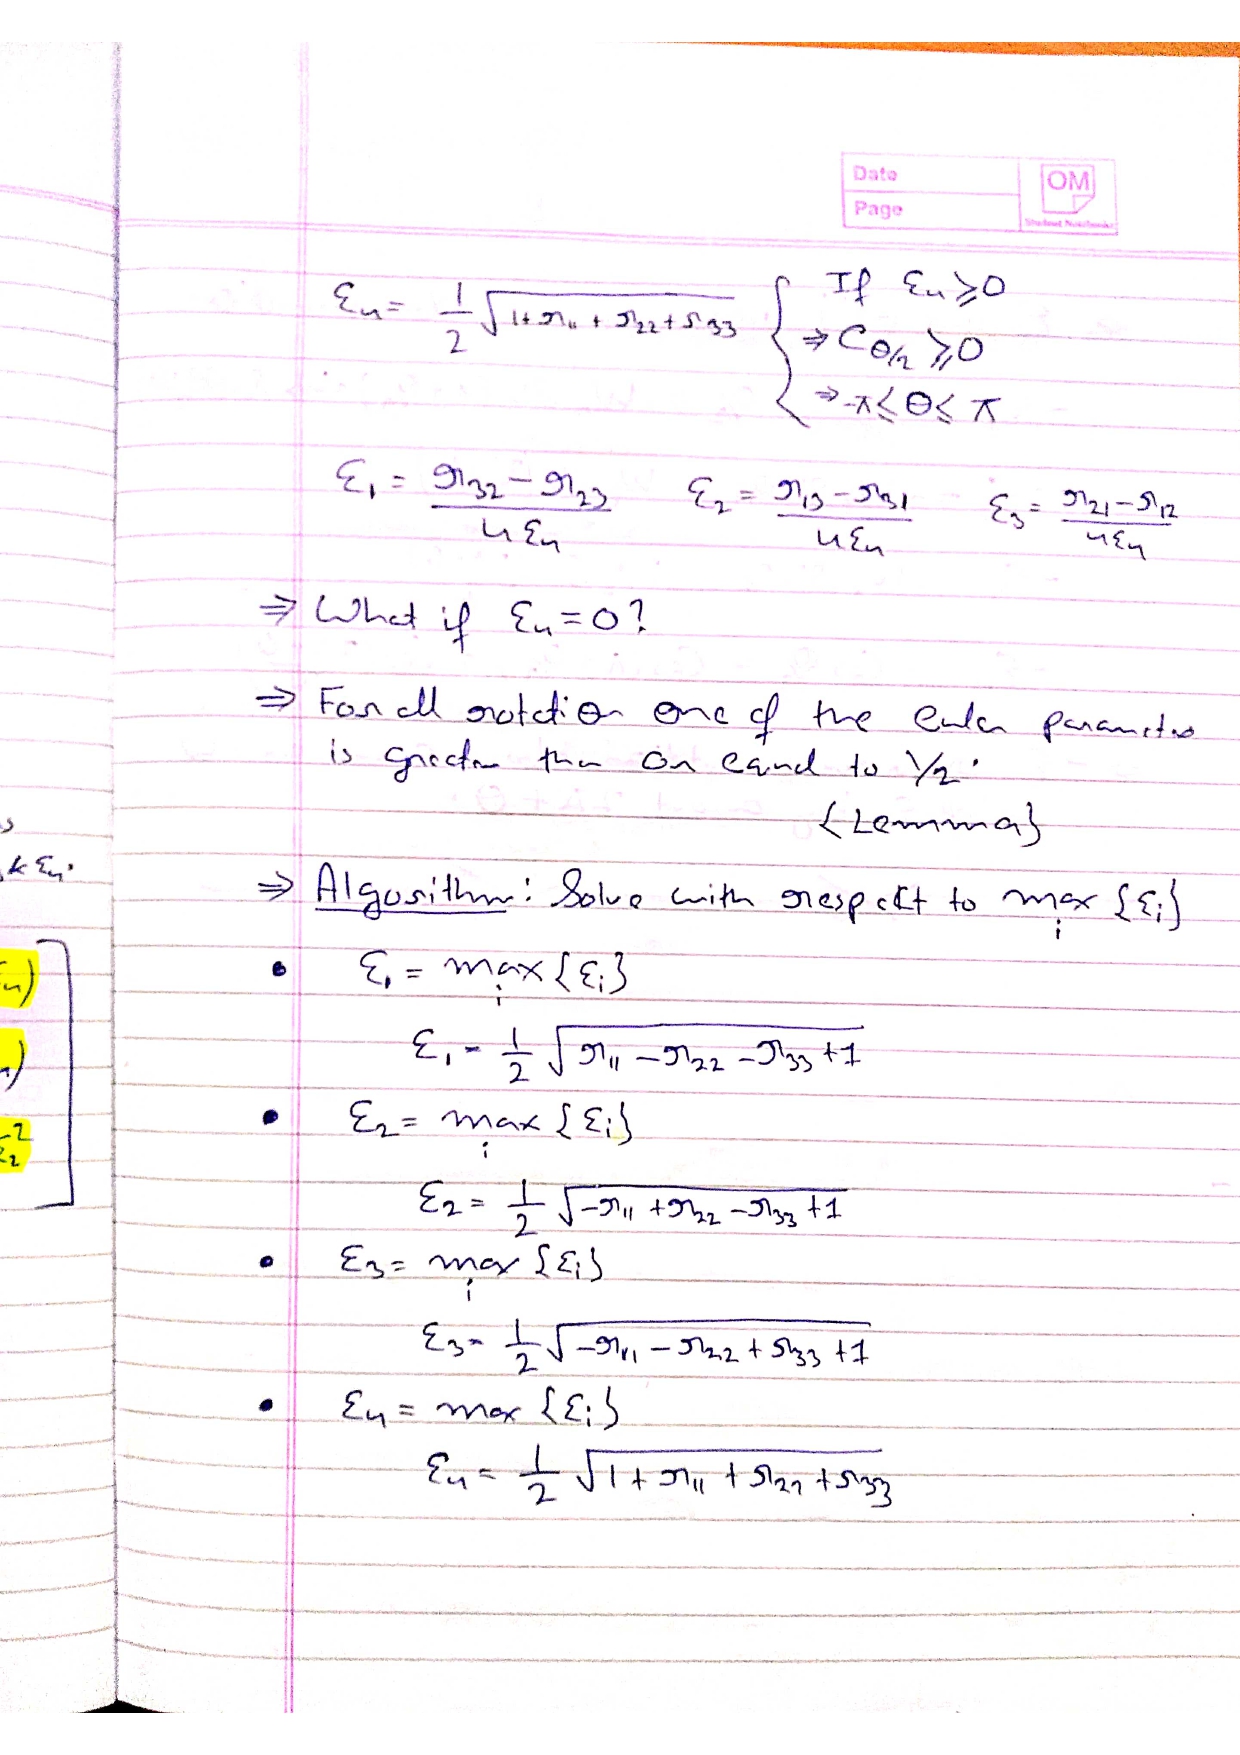 Date
Page
OM
Student Notebooks
ε₄ = 1/2 √(1 + r₁₁ + r₂₂ + r₃₃) { If ε₄ ⩾ 0
⇒ C_θ/2 ⩾ 0
⇒ -π ≤ θ ≤ π
ε₁ = (r₃₂ - r₂₃)/(4ε₄) ε₂ = (r₁₃ - r₃₁)/(4ε₄) ε₃ = (r₂₁ - r₁₂)/(4ε₄)
⇒ What if ε₄ = 0?
⇒ For all rotation one of the euler parameters
is greater than or equal to 1/2.
{Lemma}
s
k ε₄.
⇒ Algorithm: Solve with respect to max_i {ε_i}
• ε₁ = max_i {ε_i}
ε₁ = 1/2 √(r₁₁ - r₂₂ - r₃₃ + 1)
• ε₂ = max_i {ε_i}
ε₂ = 1/2 √(-r₁₁ + r₂₂ - r₃₃ + 1)
• ε₃ = max_i {ε_i}
ε₃ = 1/2 √(-r₁₁ - r₂₂ + r₃₃ + 1)
• ε₄ = max {ε_i}
ε₄ = 1/2 √(1 + r₁₁ + r₂₂ + r₃₃)